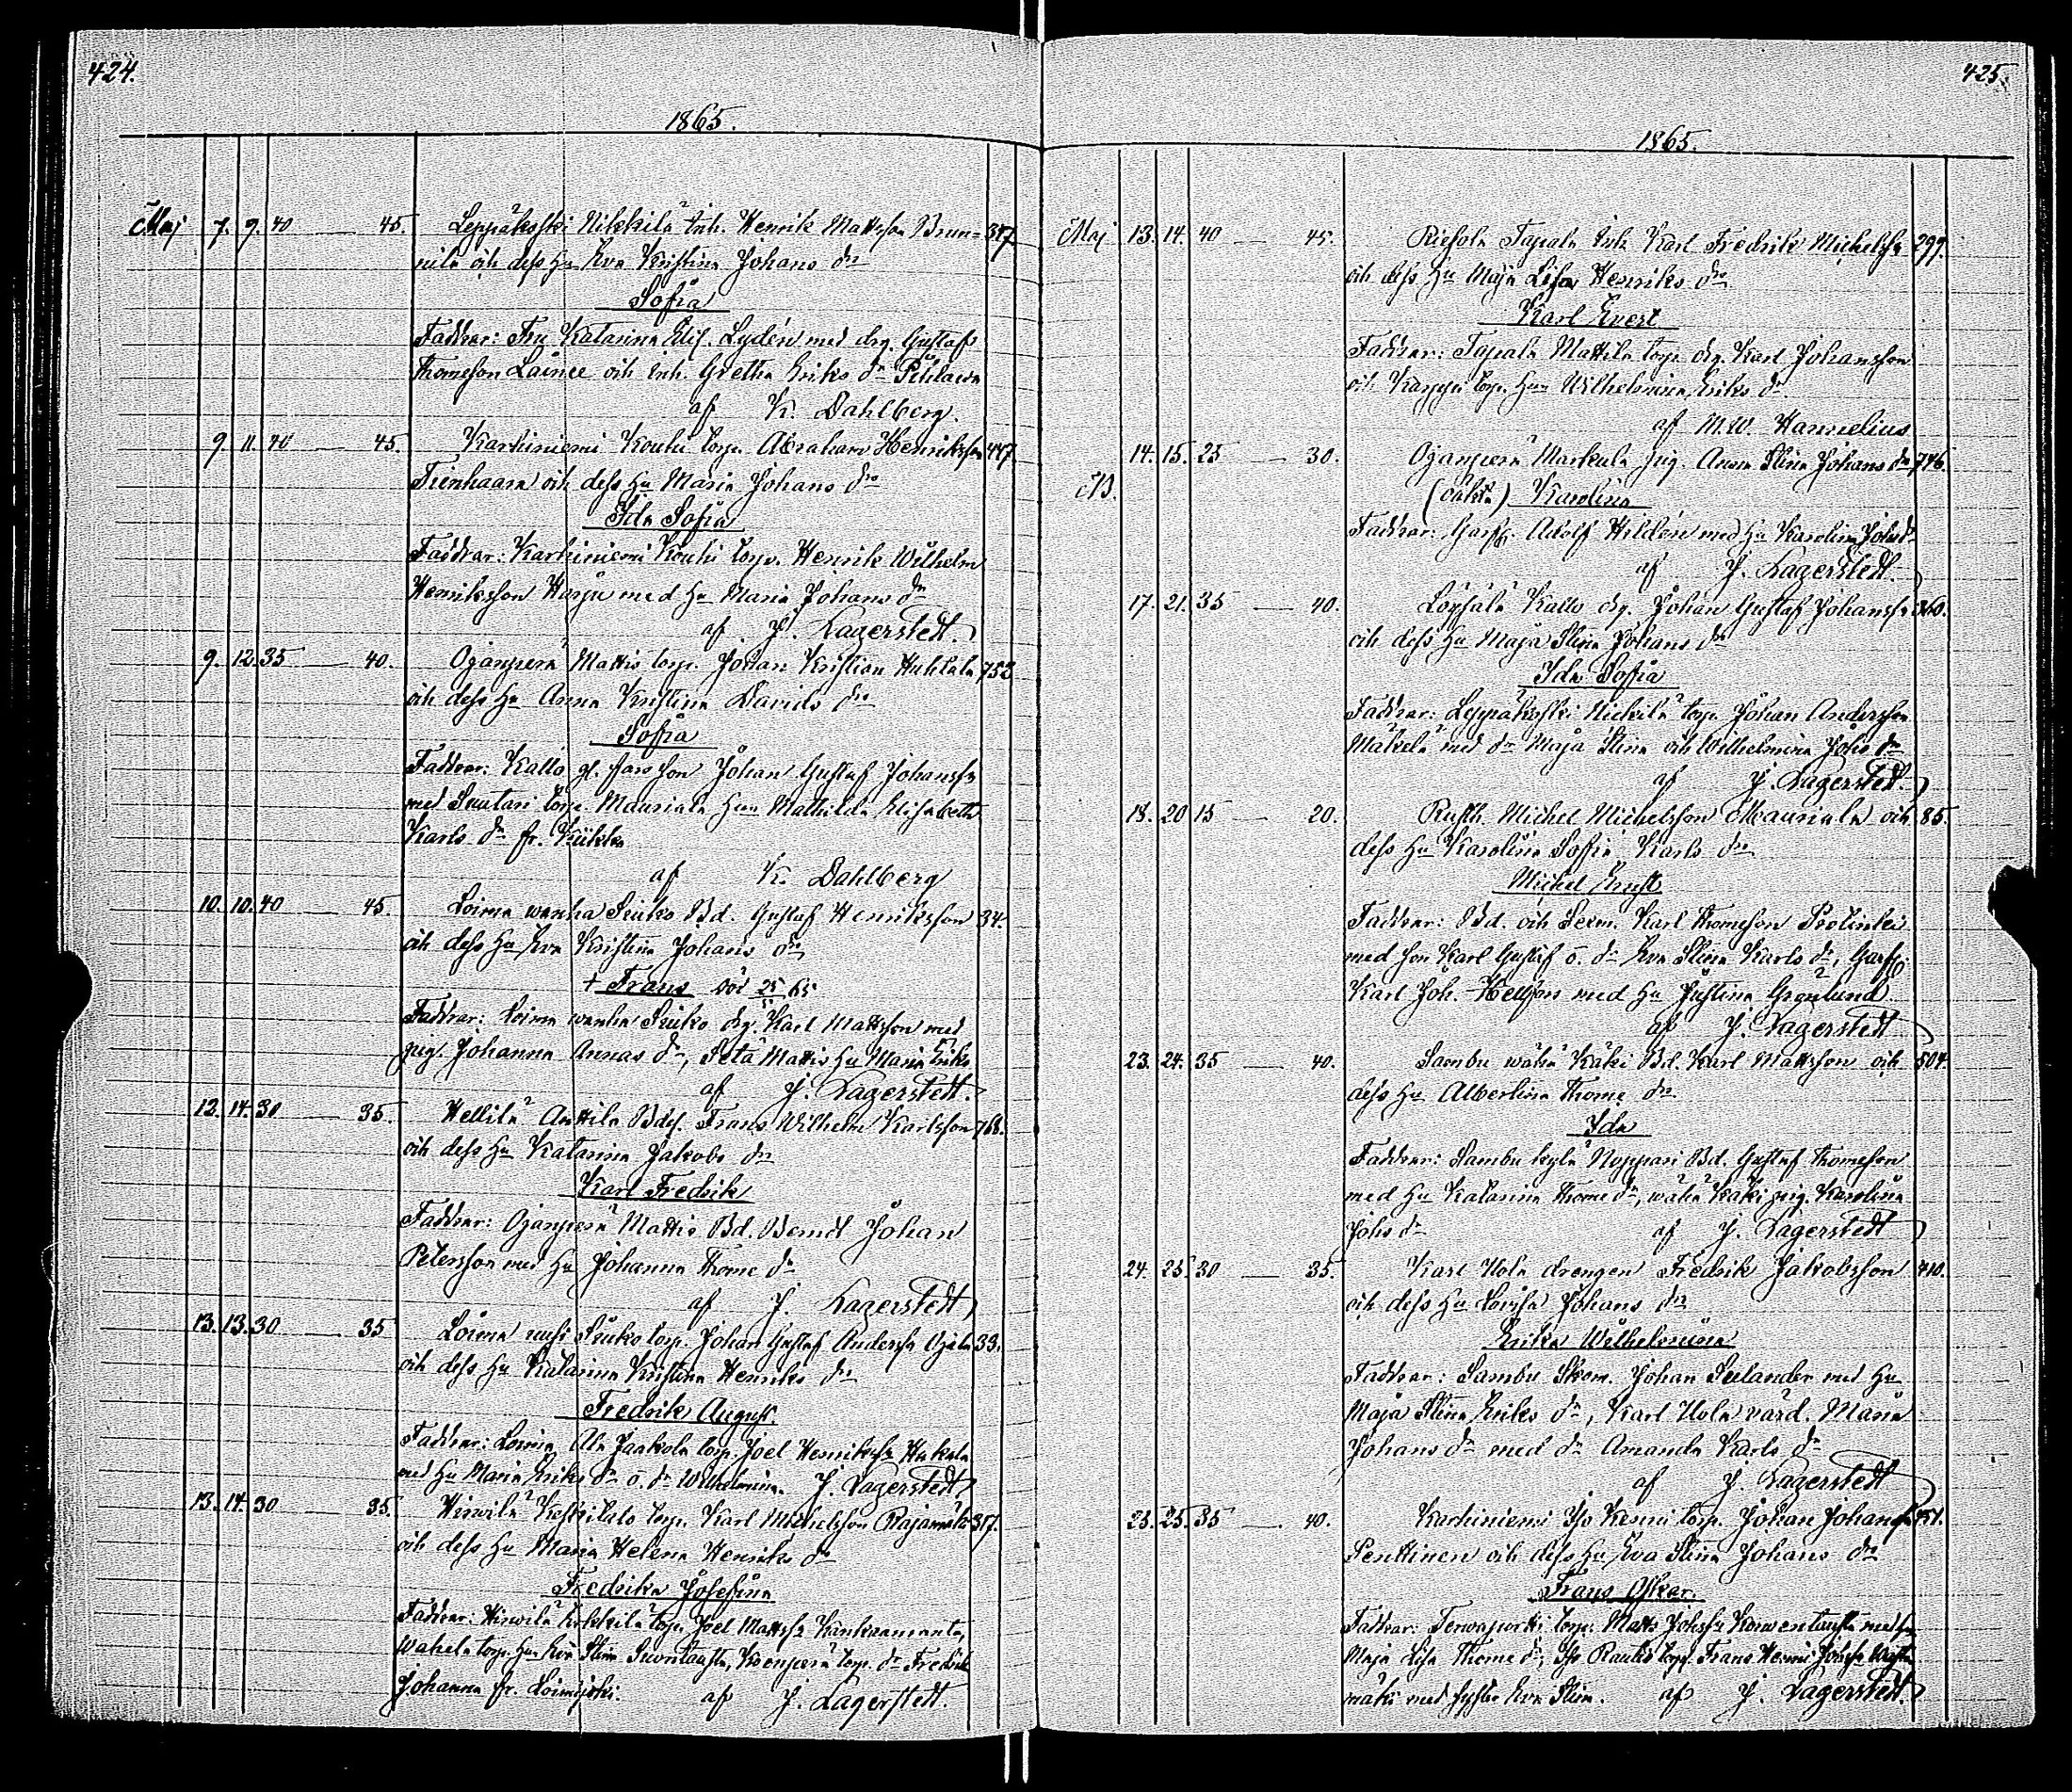 424.
1865.
Maj 7. 9. 40 — 45. Leppäkoski Nikkilä inh. Henrik Mattsson Brun- 347.
nila och dess hu Eva Kristina Johans dr
Sofia
Faddrar: Fru Katarina Elis. Lydén med drg. Gustaf
Thomesson Lainee och inh. Gretha Eriks dr
af K. Dahlberg.
9. 11. 40 — 45. Karhiniemi Kouhi torp. Abraham Henriksson 447.
Tienhaara och dess hu Maria Johans dr
Ida Sofia
Faddrar: Karhiniemi Kouhi torp. Henrik Wilhelm
Henriksson Harju med hu Maria Johans dr
af J. Lagerstedt.
9. 12. 35 — 40. Ojanperä Mattis torp. Johan Kristian Huhtala 752
och dess hu Anna Kristina Davids dr
Sofia
Faddrar: Kallo gl. Johan Gustaf Johanss.
med Suutari torp. Mauriala hun Mathilda Elisabeth
Karls dr fr.
af K. Dahlberg
10. 10. 40 — 45. Loima wanha Siuko Bd. Gustaf Henriksson 34.
och dess hu Eva Kristina Johans dr
+ Frans död 25/5 65
Faddrar: Loima wanha Siuko drg. Karl Mattsson med
pig. Johanna Annas dr, Mattis hu Maria Eriks
af J. Lagerstedt.
12. 14. 30 — 35. Hellilä Anttila Bds. Frans Wilhelm Karlsson 768.
och dess hu Katarina Jakobs dr
Karl Fredrik
Faddrar: Ojanperä Mattis Bd. Berndt Johan
Petersson med hu Johanna Thome dr
af J. Lagerstedt
13. 13. 30 — 35 Loima uusi Siuko torp. Johan Gustaf Anderss. Ojala 33.
och dess hu Katarina Kristina Henriks dr
Fredrik August.
Faddrar: Loima Ala Jaakola torp. Joel Henrikss. Hakala
med hu Maria Eriks dr o. dr Wilhelmina. J. Lagerstedt
13. 14. 30 — 35. Hirwilä Keskitalo torp. Karl Michelsson Rajamäki 317.
och dess hu Maria Helena Henriks dr
Fredrika Josefina
Faddrar: Hirwilä torp. Joel Mattss. Kankaanranta,
torp. hun Eva Stina torp. dr Fredrika
Johanna fr. Loimijoki. af J. Lagerstedt.
425.
1865.
Maj 13. 14. 40 — 45. Riesola Tapala inh. Karl Fredrik Michelss. 299.
och dess hu Maja Lisa Henriks dr
Karl Evert
Faddrar: Tapala Mattila torp. drg. Karl Johansson
och torp. hun Wilhelmina Eriks dr.
af M.W. Hannelius
14. 15. 25 — 30. Ojanperä Markula pig. Anna Stina Johans dr 746.
(oäkta) Karolina
Faddrar: Adolf Hildén med hu Karolina Johsdr
af J. Lagerstedt.
17. 21. 35 — 40. Löysälä Kallo drg. Johan Gustaf Johanss. 360.
och dess hu Maja Stina Johans dr
Ida Sofia
Faddrar: Leppäkoski Nickilä torp. Johan Andersson
Mäkelä med dr Maja Stina och Wilhelmina Johs dr
af J. Lagerstedt.
18. 20 15 — 20. Rusth. Michel Michelsson Mauriala och 85.
dess hu Karolina Sofia Karls dr
Michel Ernst
Faddrar: Bd. och Sexm. Karl Thomesson
med son Karl Gustaf o. dr Eva Stina Karls dr,
Karl Joh. med hu Justina Grönlund.
af J. Lagerstedt
23. 24. 35 — 40. Sambu wähä Käki Bd. Karl Mattsson och 504.
dess hu Albertina Thome dr.
Ida
Faddrar: Sambu kylä Noppari Bd. Gustaf Thomesson
med hu Katarina Thome dr, wähä Käki pig. Karolina
Johs dr af J. Lagerstedt
24. 25. 30 — 35. Karl Uola drengen Fredrik Jakobsson 410.
och dess hu Lovisa Johans dr
Erika Wilhelmina
Faddrar: Sambu Skom. Johan Selander med hu
Maja Stina Eriks dr, Karl Uola värd. Maria
Johans dr med dr Amanda Karls dr
af J. Lagerstedt
23. 25. 35 — 40. Karhiniemi Iso Kenni torp. Johan Johanss. 451.
Penttinen och dess hu Eva Stina Johans dr
Frans Oskar.
Faddrar: torp. Matts Johss. med hu
Maja Lisa Thome dr, Iso torp. Frans Henric Johss.
mäki med syster Eva Stina. af J. Lagerstedt